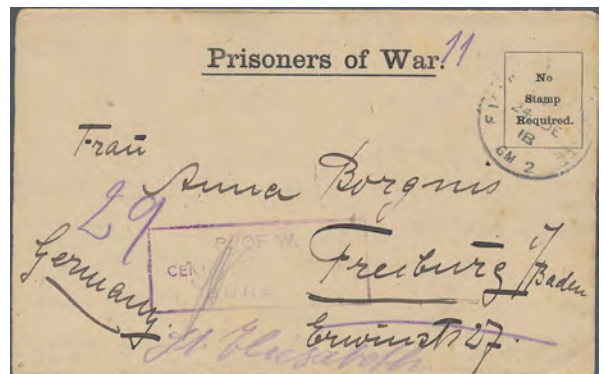 Prisoners of War. 11
No
Stamp
Required.
24 DE
18
GM 2
Frau
Anna Borgnis
29
P. OF W.
CEN
BUR
Freiburg i/Baden
Germany.
Erwinstr 27.
St. Elisabeth